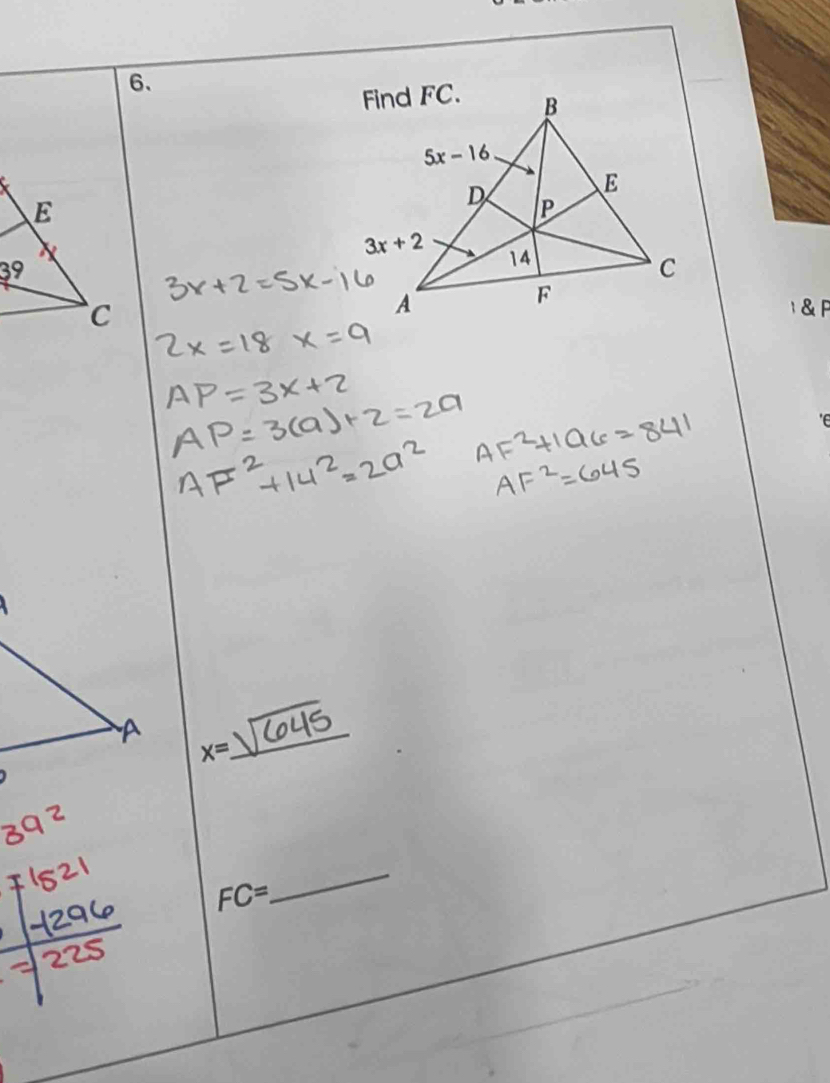 6.
Find FC.
B
5x – 16
D
E
P
3x + 2
14
A
F
C
E
39
C
3x+2=5x-16
2x=18 x=9
AP=3x+2
AP=3(9)+2=29
AF²+14²=29²
AF²+196=841
AF²=645
& P
A
x=√645
39²
=1521
-1296
=225
FC=